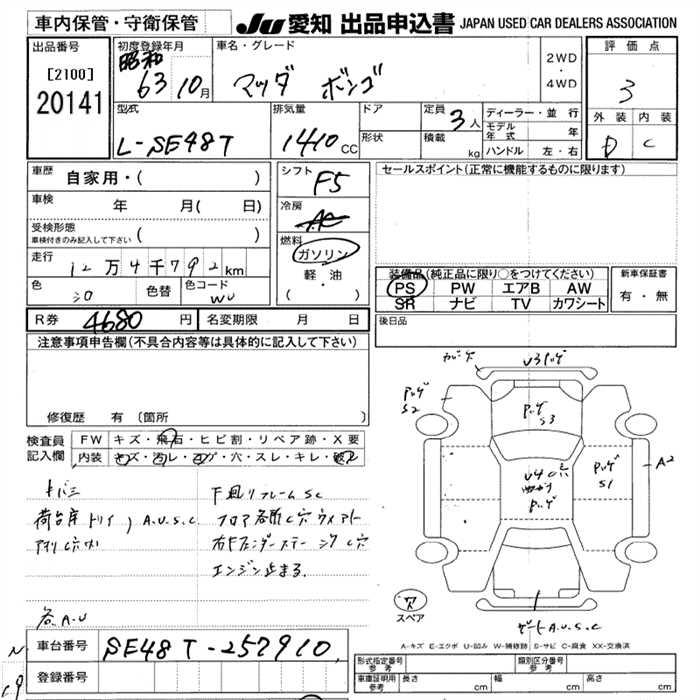 車内保管・守衛保管
JU 愛知 出品申込書 JAPAN USED CAR DEALERS ASSOCIATION
出品番号
[2100]
20141
初度登録年月
昭和
63 10月
車名・グレード
マツダ ボンゴ
2WD
・
4WD
評価点
3
外装 内装
D C
型式
L-SE48T
排気量
1410 CC
ドア
形状
定員
3人
積載
kg
ディーラー・並行
モデル年式 年
ハンドル 左・右
車歴
自家用・( )
車検
年 月( 日)
受検形態
車検付きのみ記入して下さい ( )
走行
12万4千792km
色
シロ
色替
色コード
WU
シフト
F5
冷房
AC
燃料
ガソリン
・
軽・油
( ・ )
セールスポイント(正常に機能するものに限ります)
装備品(純正品に限り○をつけてください)
PS PW エアB AW
SR ナビ TV カワシート
新車保証書
有・無
R券 4680 円 名変期限 月 日
後日品
注意事項申告欄(不具合内容等は具体的に記入して下さい)
修復歴 有〔箇所
検査員
記入欄
FW キズ・飛石・ヒビ割・リペア跡・X要
内装 キズ・汚レ・コゲ・穴・スレ・キレ・破レ
下廻りフレームSC
荷台床
A.U.S.C
フロア各所C穴
エンジン止まる
各A.U
U3
S2
S3
U4
S1
A2
スペア
A.U.S.C
A-キズ E-エクボ U-凹み W-補修跡 S-サビ C-腐食 XX-交換済
車台番号 SE48T-257910
登録番号
形式指定番号
参考
類別区分番号
参考
車庫証明用
参考
長さ cm 幅 cm 高さ cm